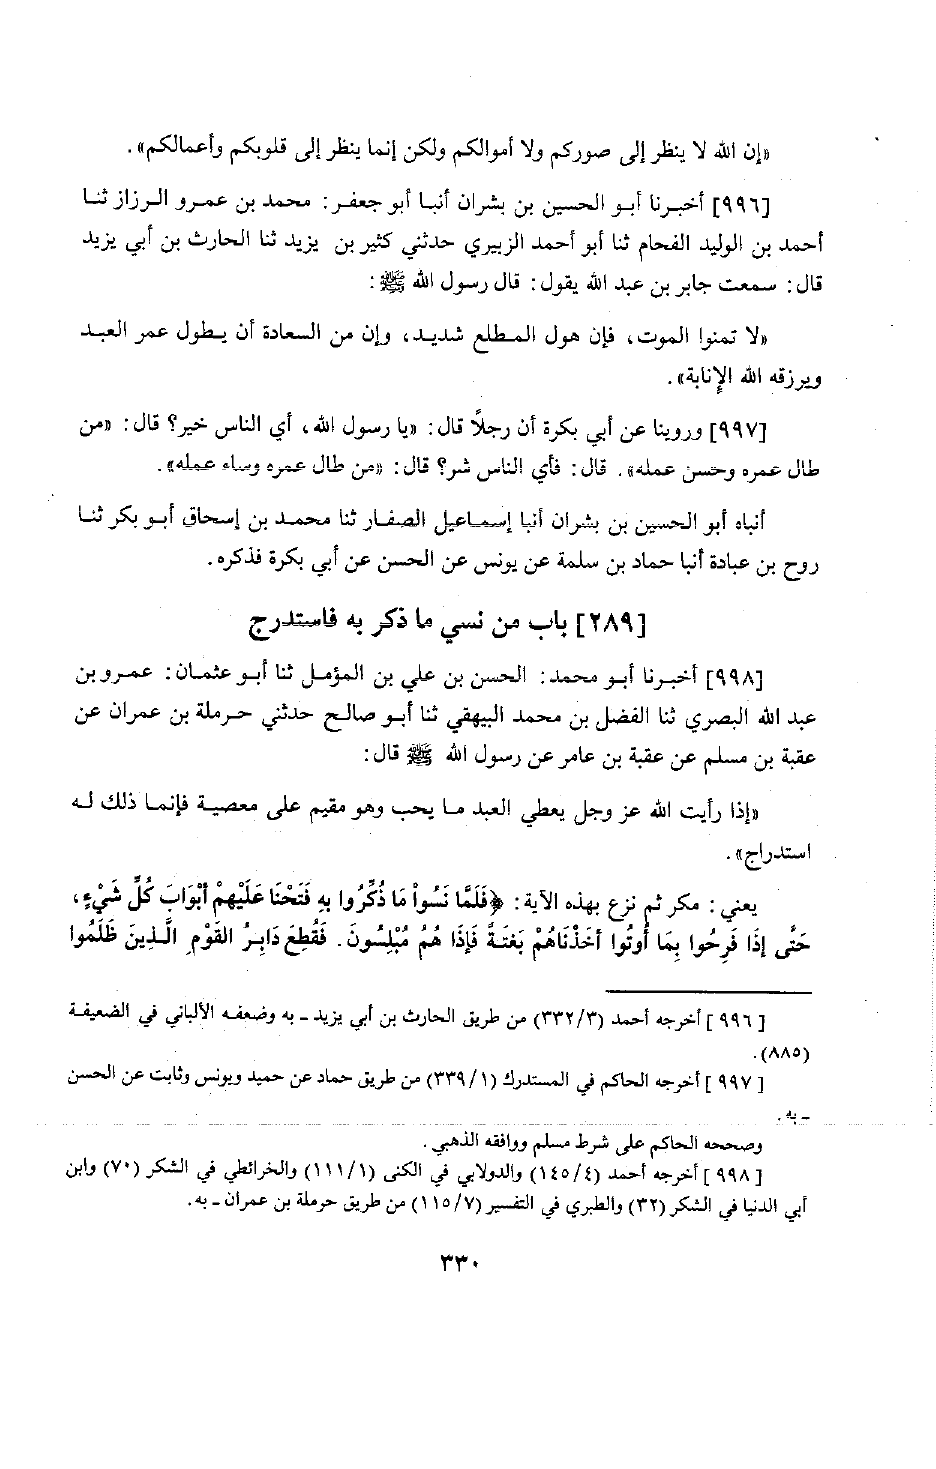 «إن الله لا ينظر إلى صوركم ولا أموالكم ولكن إنما ينظر إلى قلوبكم وأعمالكم».
[٩٩٦] أخبرنا أبو الحسين بن بشران أنبا أبو جعفر: محمد بن عمرو الرزاز ثنا
أحمد بن الوليد الفحام ثنا أبو أحمد الزبيري حدثني كثير بن يزيد ثنا الحارث بن أبي يزيد
قال: سمعت جابر بن عبد الله يقول: قال رسول الله ﷺ:
«لا تمنوا الموت، فإن هول المطلع شديد، وإن من السعادة أن يطول عمر العبد
ويرزقه الله الإنابة».
[٩٩٧] وروينا عن أبي بكرة أن رجلاً قال: «يا رسول الله، أي الناس خير؟ قال: «من
طال عمره وحسن عمله». قال: فأي الناس شر؟ قال: «من طال عمره وساء عمله».
أنباه أبو الحسين بن بشران أنبا إسماعيل الصفار ثنا محمد بن إسحاق أبو بكر ثنا
روح بن عبادة أنبا حماد بن سلمة عن يونس عن الحسن عن أبي بكرة فذكره.
[٢٨٩] باب من نسي ما ذكر به فاستدرج
[٩٩٨] أخبرنا أبو محمد: الحسن بن علي بن المؤمل ثنا أبو عثمان: عمرو بن
عبد الله البصري ثنا الفضل بن محمد البيهقي ثنا أبو صالح حدثني حرملة بن عمران عن
عقبة بن مسلم عن عقبة بن عامر عن رسول الله ﷺ قال:
«إذا رأيت الله عز وجل يعطي العبد ما يحب وهو مقيم على معصية فإنما ذلك له
استدراج».
يعني: مكر ثم نزع بهذه الآية: ﴿فَلَمَّا نَسُوا مَا ذُكِّرُوا بِهِ فَتَحْنَا عَلَيْهِمْ أَبْوَابَ كُلِّ شَيْءٍ،
حَتَّى إِذَا فَرِحُوا بِمَا أُوتُوا أَخَذْنَاهُمْ بَغْتَةً فَإِذَا هُمْ مُبْلِسُونَ. فَقُطِعَ دَابِرُ القَوْمِ الَّذِينَ ظَلَمُوا
[٩٩٦] أخرجه أحمد (٣/ ٣٣٢) من طريق الحارث بن أبي يزيد ـ به وضعفه الألباني في الضعيفة
(٨٨٥).
[٩٩٧] أخرجه الحاكم في المستدرك (١/ ٣٣٩) من طريق حماد عن حميد ويونس وثابت عن الحسن
ـ به.
وصححه الحاكم على شرط مسلم ووافقه الذهبي.
[٩٩٨] أخرجه أحمد (٤/ ١٤٥) والدولابي في الكنى (١/ ١١١) والخرائطي في الشكر (٧٠) وابن
أبي الدنيا في الشكر (٣٢) والطبري في التفسير (٧/ ١١٥) من طريق حرملة بن عمران ـ به.
٣٣٠